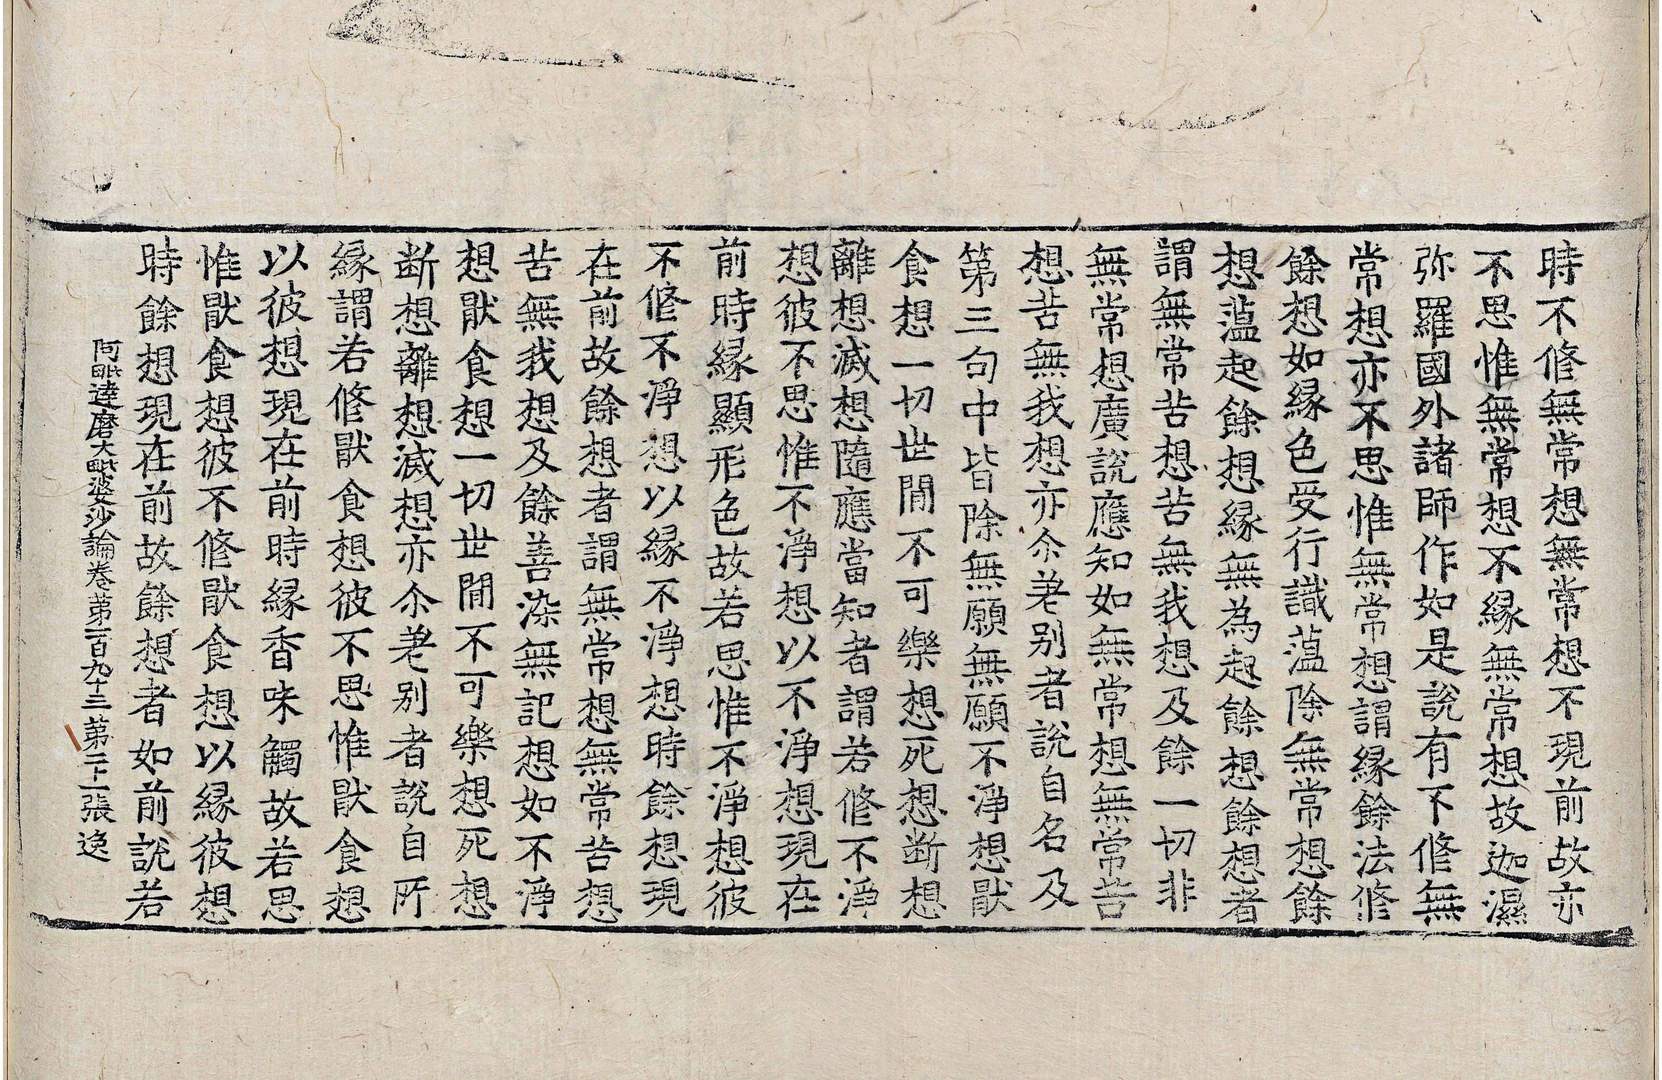 時不修無常想無常想不現前故亦
不思惟無常想不緣無常想故迦濕
弥羅國外諸師作如是說有不修無
常想亦不思惟無常想謂緣餘法修
餘想如緣色受行識薀除無常想餘
想薀起餘想緣無為起餘想餘想者
謂無常苦想苦無我想及餘一切非
無常想廣說應知如無常想無常苦
想苦無我想亦尒差別者說自名及
第三句中皆除無願無願不淨想猒
食想一切世閒不可樂想死想断想
離想滅想隨應當知者謂若修不淨
想彼不思惟不淨想以不淨想現在
前時緣顯形色故若思惟不淨想彼
不修不淨想以緣不淨想時餘想現
在前故餘想者謂無常想無常苦想
苦無我想及餘善染無記想如不淨
想猒食想一切世閒不可樂想死想
断想離想滅想亦尒差別者說自所
緣謂若修猒食想彼不思惟猒食想
以彼想現在前時緣香味觸故若思
惟猒食想彼不修猒食想以緣彼想
時餘想現在前故餘想者如前說若
阿毗達磨大毗婆沙論卷第一百九十三 第二十一張 逸